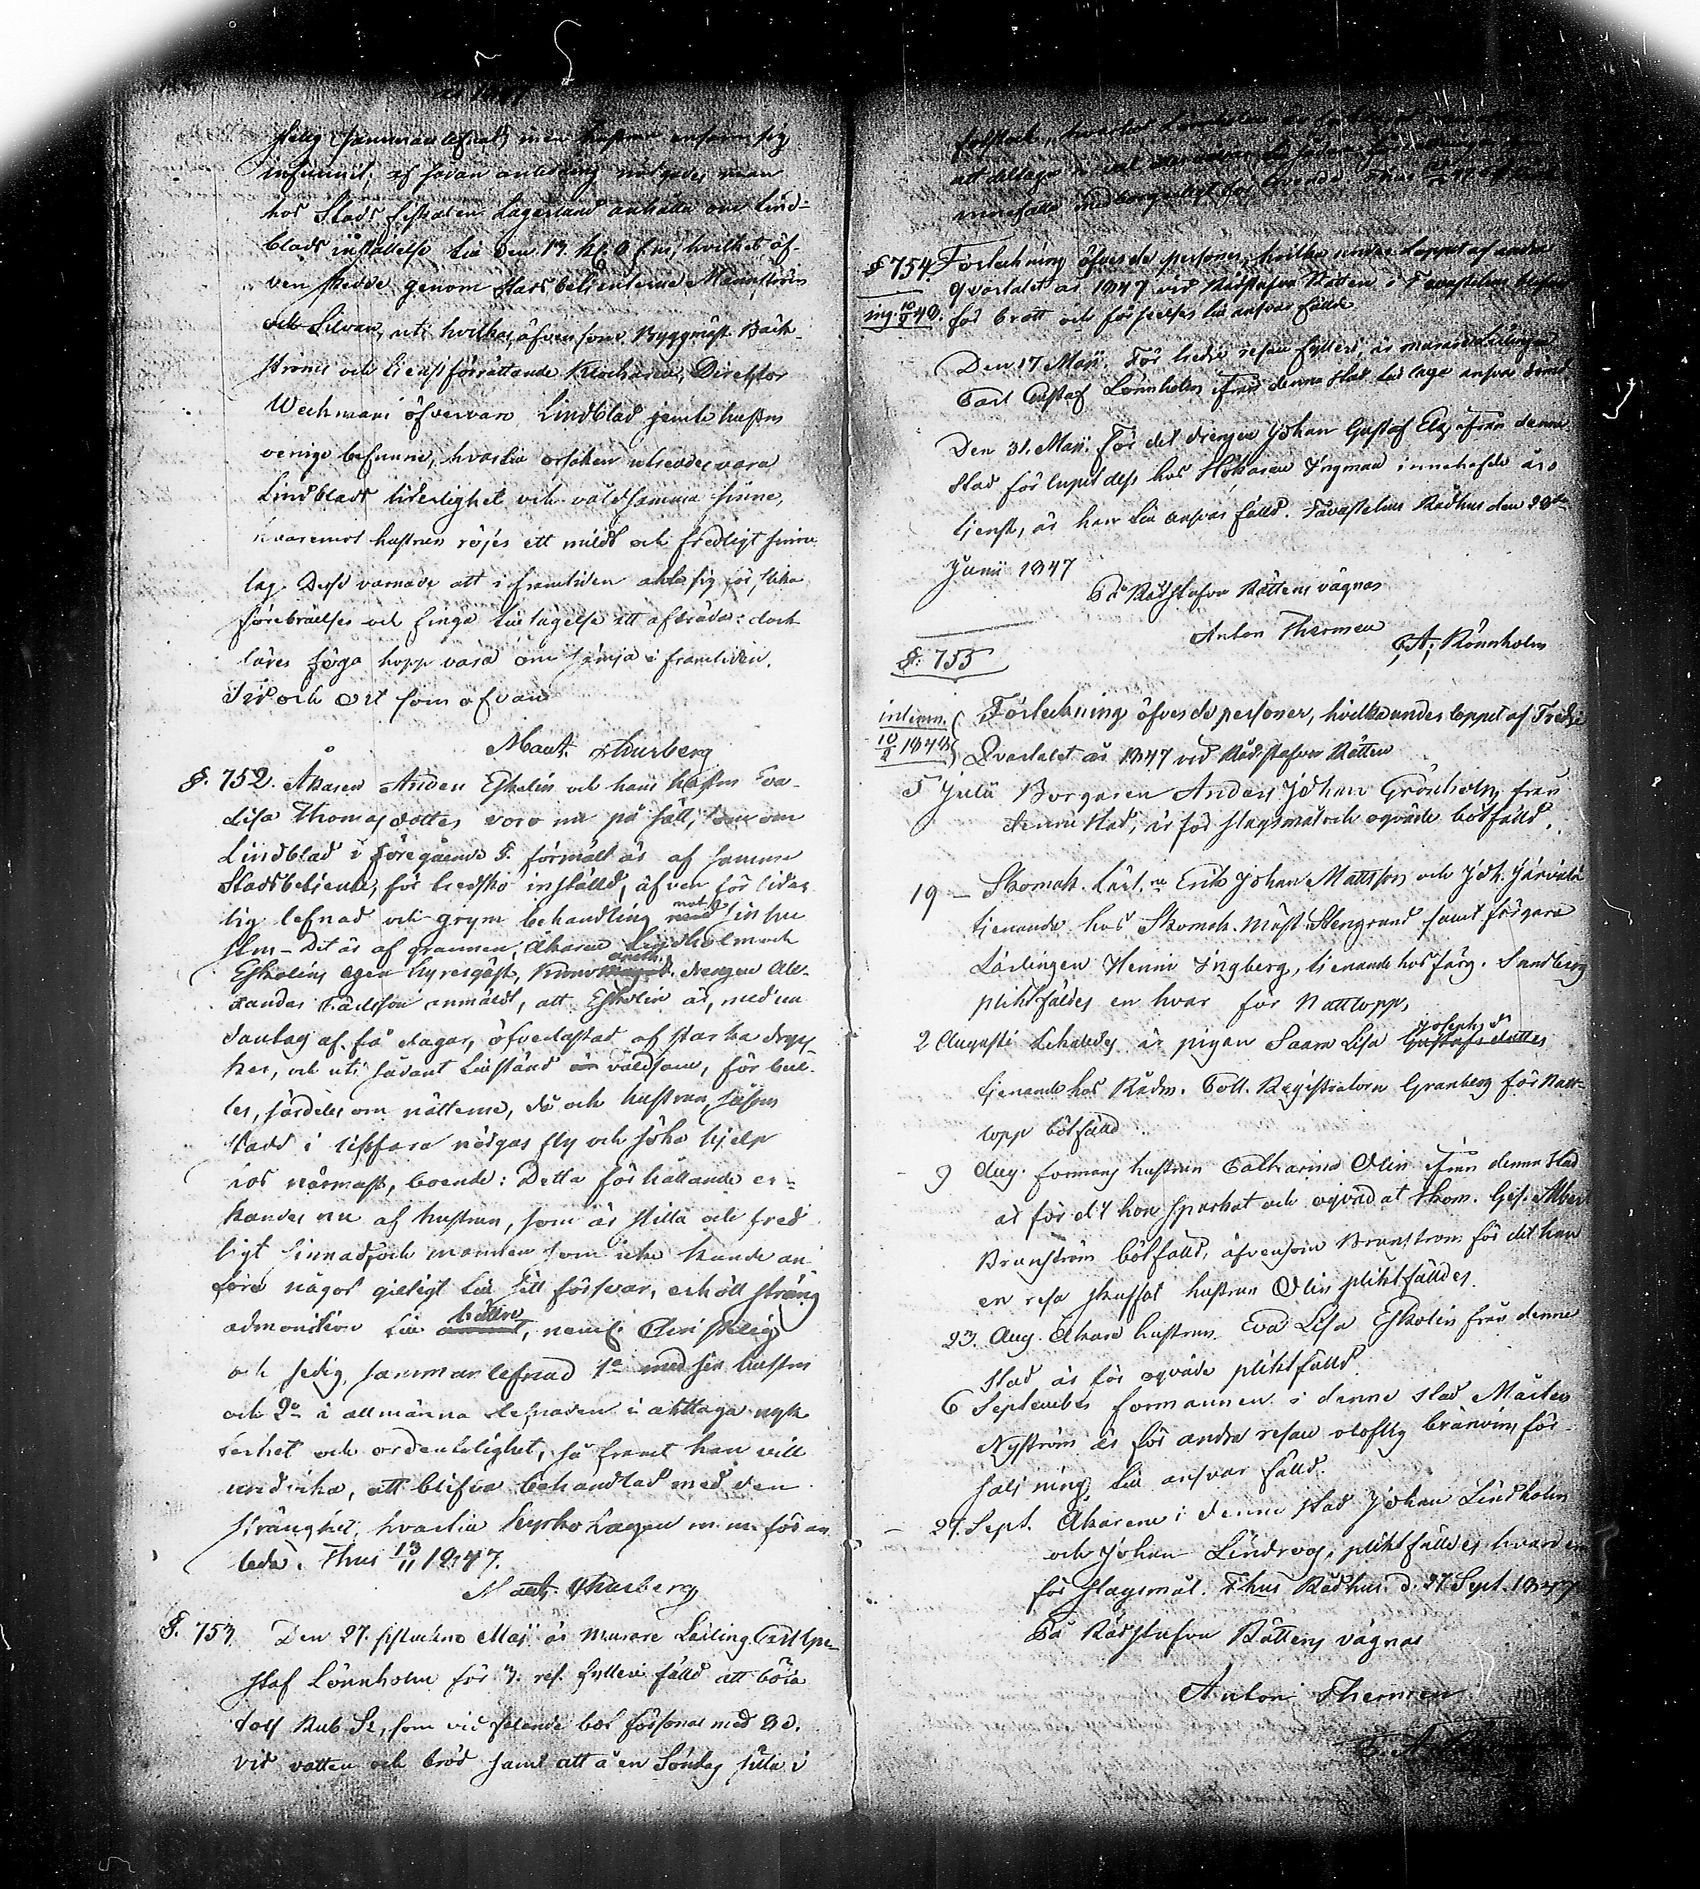 infunnit; af sådan anledning nödgades man
hos Stads fiskalen Lagerstand anhålla om Lind-
blads inställelse till den 13. kl. 6 e.m, hvilket äf-
ven skedde genom Stadsbetjenterne Mannström
och Silvan, uti hvilkas, äfvensom Byggmäst. Bäck-
ströms och tjenstförrättande Klockaren, Direktor
Wechmans öfvervaro Lindblad jemte hustru
oenige befunne, hvartill orsaken utreddes vara
Lindblads liderlighet och våldsamma sinne,
hvaremot hustrun röjes ett mildt och fredligt sinne
lag. Desse varnade att i framtiden akta sig för slika
förebråelser och finge tillåtelse att afträda: dock
lärer föga hopp vara om sämja i framtiden.
Tid och Ort som ofvan
§. 752. Åkaren Anders Eskolin och hans hustru Eva
Lisa Thomasdotter voro nu på sätt, som om
Lindblad i Föregående §. förmält är af samme
Stadsbetjente, för tredsko inställd, äfven för lider
lig lefnad och grym behandling mot sin hu
stru – Det är af grannen, Åkaren Lindholm och
Eskolins egen hyresgäst, drengen Ale-
xander Carlsson anmäldt, att Eskolin är, med un
dantag af få dagar, öfverlastad af starka dryc
ker, och uti sådant tillstånd våldsam, för bul-
ler, särdeles om nätterne, då och hustrun, såsom
stadd i lifsfara nödgas fly och söka hjelp
hos närmast, boende: Detta förhållande er-
kändes nu af hustrun, som är stilla och fred
ligt sinnad, och mannen som icke kunde an
föra något giltigt till sitt försvar, erhöll sträng
admonition till bättre, neml. Christelig
och sedig sammanlefnad 1o med sin hustru
och 2o i allmänna lefnaden i akttaga nyk
terhet och ordentelighet, så framt han vill
undvika, att blifva behandlad med den
stränghet, hvartill kyrkolagen m.m. för an
leda. Thus 13/11 1847.
§. 753 Den 27. sistledne Maji är murare Lärling. Carl Gu-
staf Lönnholm för 3. res. fylleri fälld att böta
tolf Rub Sr, som vid felande bot försonas med
vid vatten och bröd samt att å en Söndag sitta i
§ 754 Förteckning öfver de personer, hvilka under loppet af andra
qvartalet år 1847 vid Rådstufvu Rätten i Tavastehus blifvit
för brott och förseelser till ansvar fällde.
Den 17 Maji. För tredje resan fylleri, är murare Lärlingen
Carl Gustaf Lönnholm från denna stad till laga ansvar dömd
Den 31. Maji. För det drengen Johan Gustaf Ek, från denna
stad förlupit dess hos Hökaren Yngman innehafde års
tjenst, är han till ansvar fälld. Tavastehus Rådhus den 28de
Junii 1847
På Rådstufvu Rättens vägnar
Anton Thermen
A. Rönnholm
§. 755
Förteckning öfver de personer, hvilka under loppet af Tredje
Qvartalet år 1847 vid Rådstufvu Rätten
5 Julii Borgaren Anders Johan Grönholm från
denna stad, är för slagsmål och oqväde bötfälld.
19 – Skomak. Lärl. Erik Johan Mattsson och Joh. Järvelä
tjenande hos Skomak. Mäst. Stengrund samt färgare
Lärlingen Henric Yngberg, tjenande hos färg. Sundberg
pliktfäldes en hvar för Nattlopp.
2 Augusti likaledes är pigan Saara Lisa Josephs dr
tjenande hos Rådm. Coll. Registratorn Granberg för Natt-
lopp bötfälld
9 Aug. formans hustrun Catharina Olin från denna stad
är för det hon sparkat och oqvädat skom. Ges. Albert
Brunström bötfälld, äfvensom Brunström för det han
en resa skuffat hustrun Olin pliktfälldes.
23. Aug. Åkare hustrun Eva Lisa Eskolin från denna
stad är för oqväde pliktfälld
6 September formannen i denna stad Mårten
Nyström är för andra resan oloflig bränvins för-
säljning till ansvar fälld.
27. Sept. Åkarene i denna stad Johan Lindholm
och Johan Lindroos, pliktfälldes hvardera
för slagsmål. Thus Rådhus. d. 27 Sept. 1847
På Rådstufvu Rättens vägnar
Anton Thermen